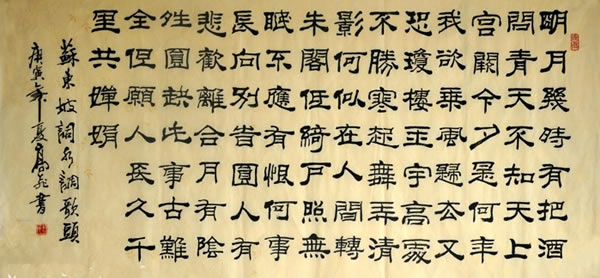 明月幾時有把酒
問青天不知天上
宮闕今夕是何年
我欲乘風歸去又
恐瓊樓玉宇高處
不勝寒起舞弄清
影何似在人間轉
朱閣低綺戶照無
眠不應有恨何事
長向別時圓人有
悲歡離合月有陰
晴圓缺此事古難
全但願人長久千
里共嬋娟
蘇東坡詞水調歌頭
庚寅年夏書